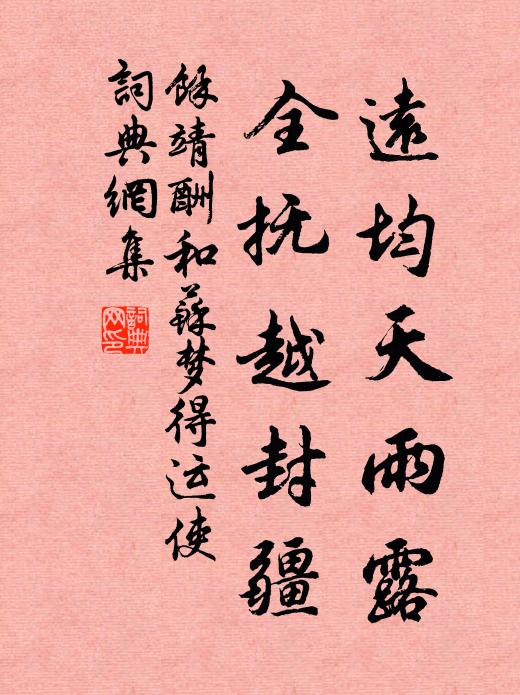 遠均天雨露
全抚越封疆
餘靖酬和蘇梦得运使
詞典網集
詞典网印